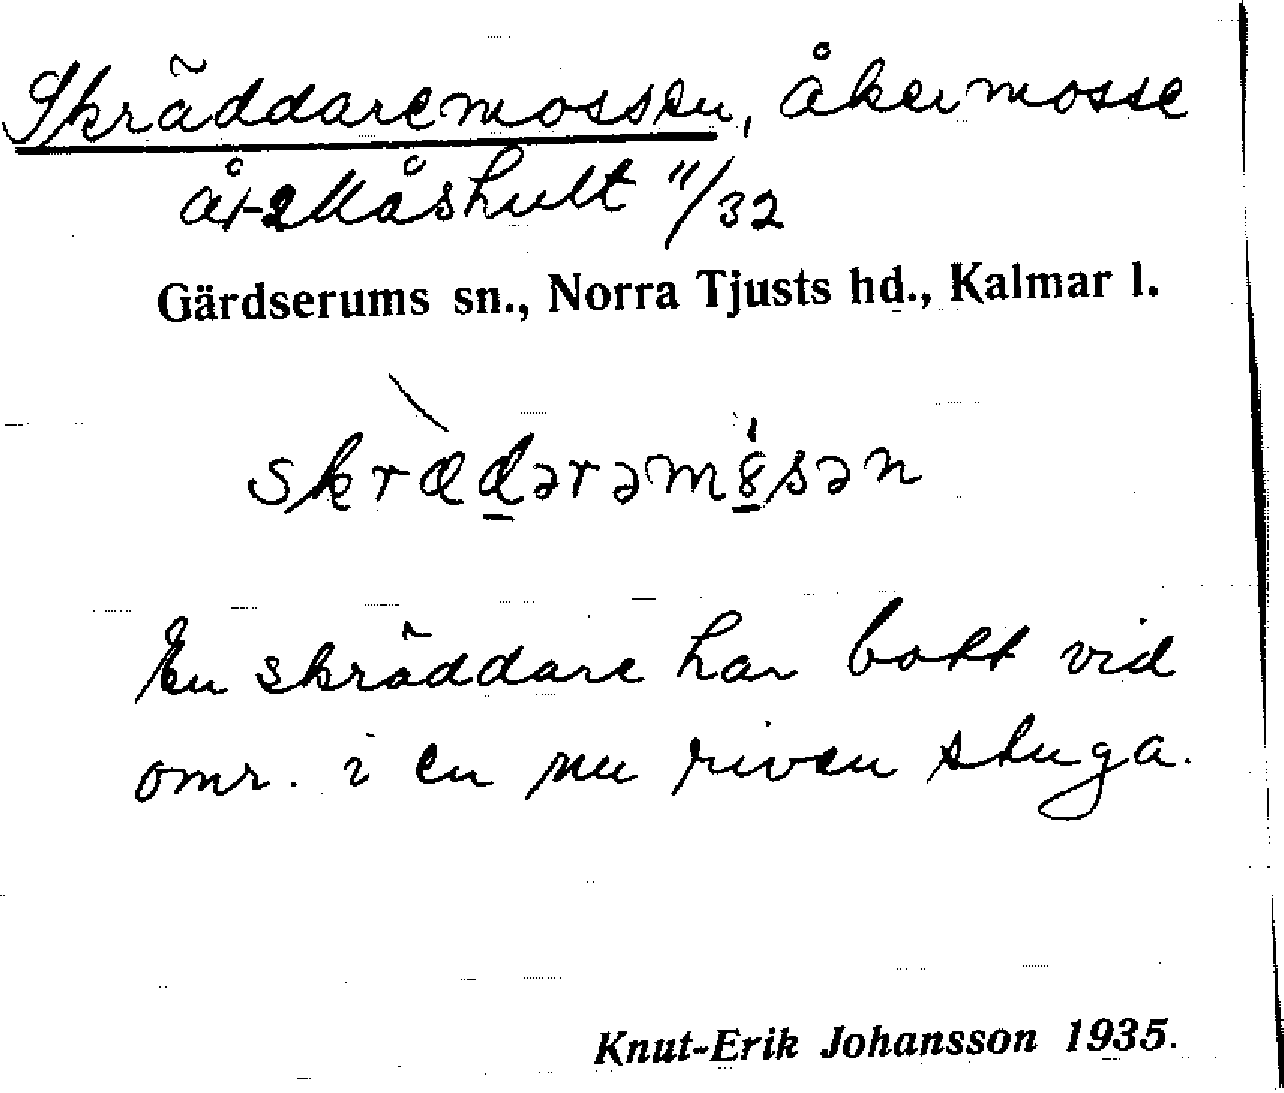 Skräddaremossen, åkermosse
åt Måshult 11/32
Gärdserums sn., Norra Tjusts hd., Kalmar l.
skrædərəmȯsən
En skräddare har bott vid
omr. i en nu riven stuga.
Knut-Erik Johansson 1935.